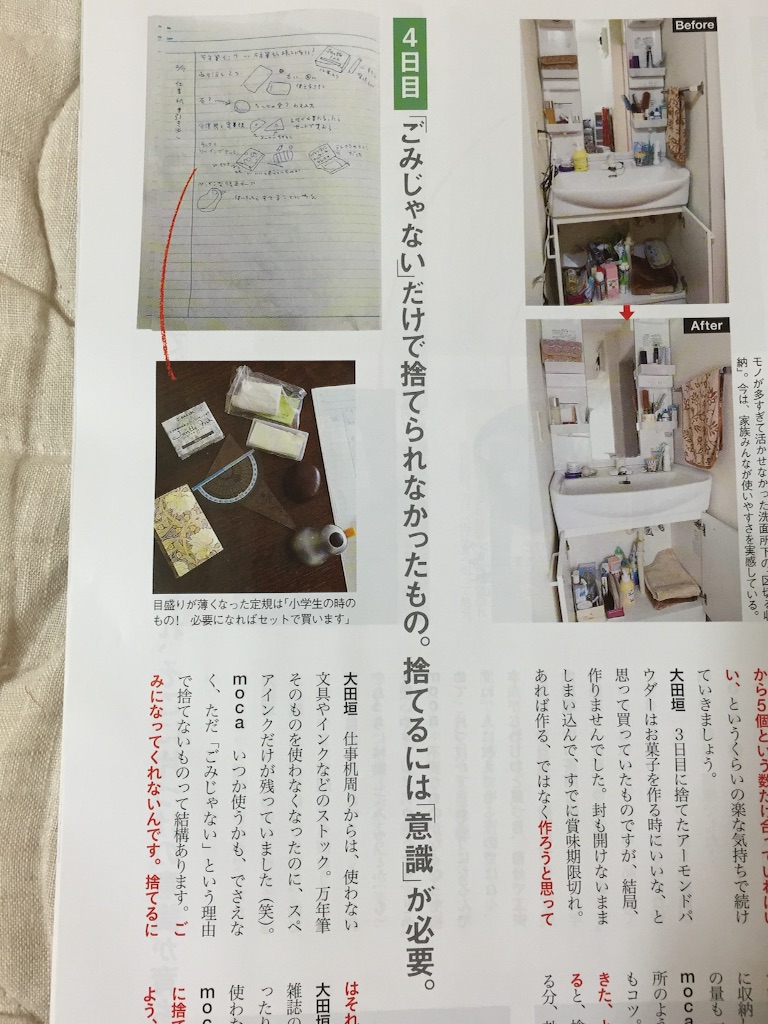 Before
After
モノが多すぎて活かせなかった洗面所下の「区切る収
納」。今は、家族みんなが使いやすさを実感している。
から５個という数だけ合っていればい
い、というくらいの楽な気持ちで続け
ていきましょう。
大田垣　３日目に捨てたアーモンドパ
ウダーはお菓子を作る時にいいな、と
思って買っていたものですが、結局、
作りませんでした。封も開けないまま
しまい込んで、すでに賞味期限切れ。
あれば作る、ではなく作ろうと思って
に収納し
の量も
moca
所のよう
もコツ。
きた、と
ると、
る分、
４日目
「ごみじゃない」だけで捨てられなかったもの。捨てるには「意識」が必要。
目盛りが薄くなった定規は「小学生の時の
もの！　必要になればセットで買います」
大田垣　仕事机周りからは、使わない
文具やインクなどのストック。万年筆
そのものを使わなくなったのに、スペ
アインクだけが残っていました（笑）。
moca　いつか使うかも、でさえな
く、ただ「ごみじゃない」という理由
で捨てないものって結構あります。ご
みになってくれないんです。捨てるに
はそれ
大田垣
雑誌の
ったり
使わな
moca
に捨て
よう、